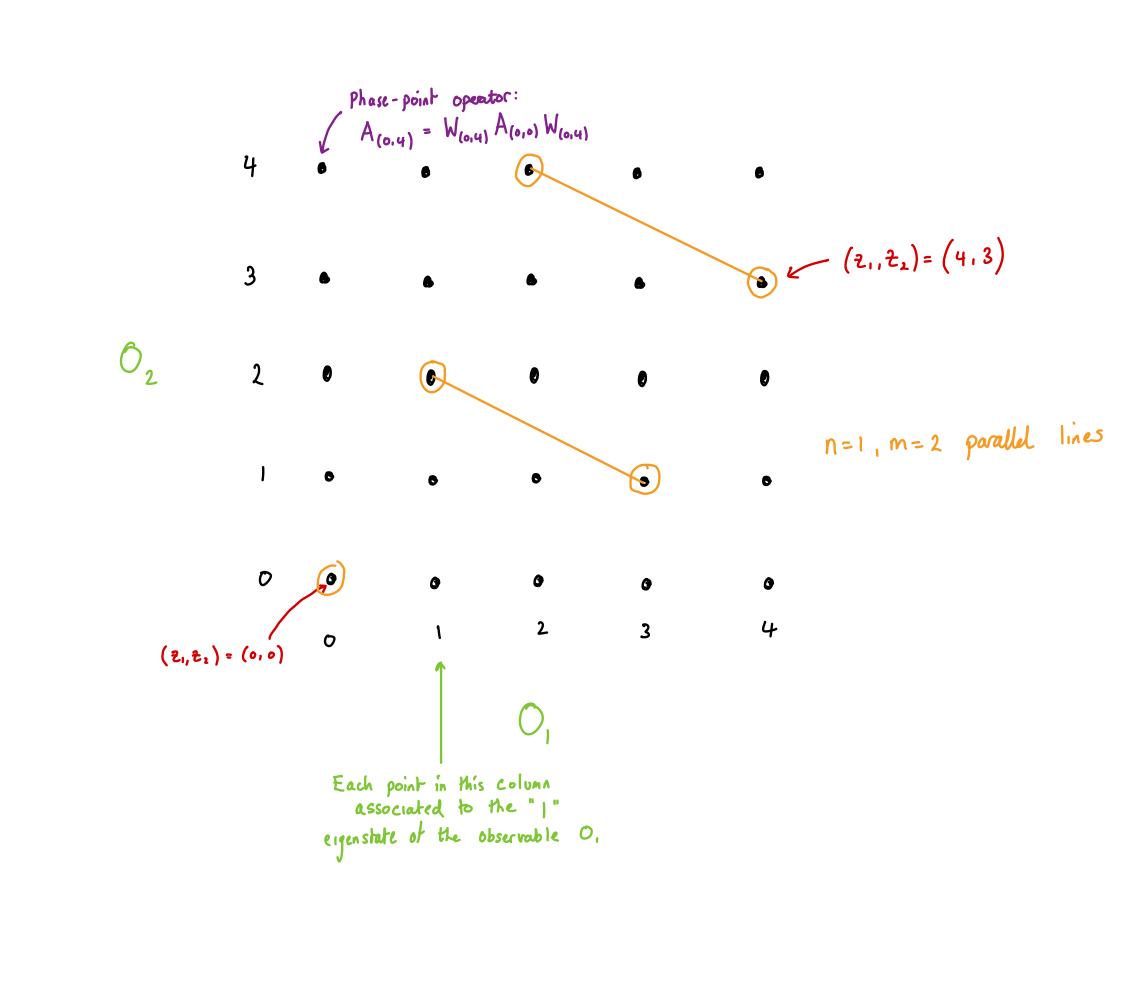 Phase-point operator:
A(0,4) = W(0,4) A(0,0) W(0,4)
4
(z₁,z₂) = (4,3)
3
O₂
2
n=1, m=2 parallel lines
1
0
(z₁,z₂) = (0,0)
0 1 2 3 4
O₁
Each point in this column
associated to the "1"
eigenstate of the observable O₁